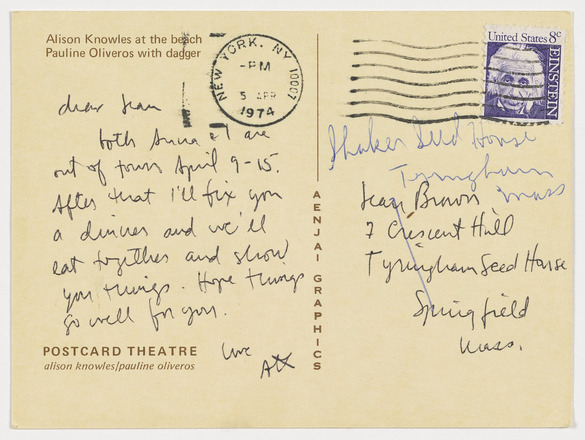 Alison Knowles at the beach
Pauline Oliveros with dagger
NEW YORK, NY 10007
-PM
5 APR
1974
United States 8c
EINSTEIN
dear Jean
both Anna & I are
out of town April 9-15.
After that I'll fix you
a dinner and we'll
eat together and show
you things. Hope things
go well for you.
love
POSTCARD THEATRE
alison knowles/pauline oliveros
AENJAI GRAPHICS
Shaker Seed House
Tyringham
Mass
Jean Brown
7 Crescent Hill
Tyringham Seed House
Springfield
Mass.